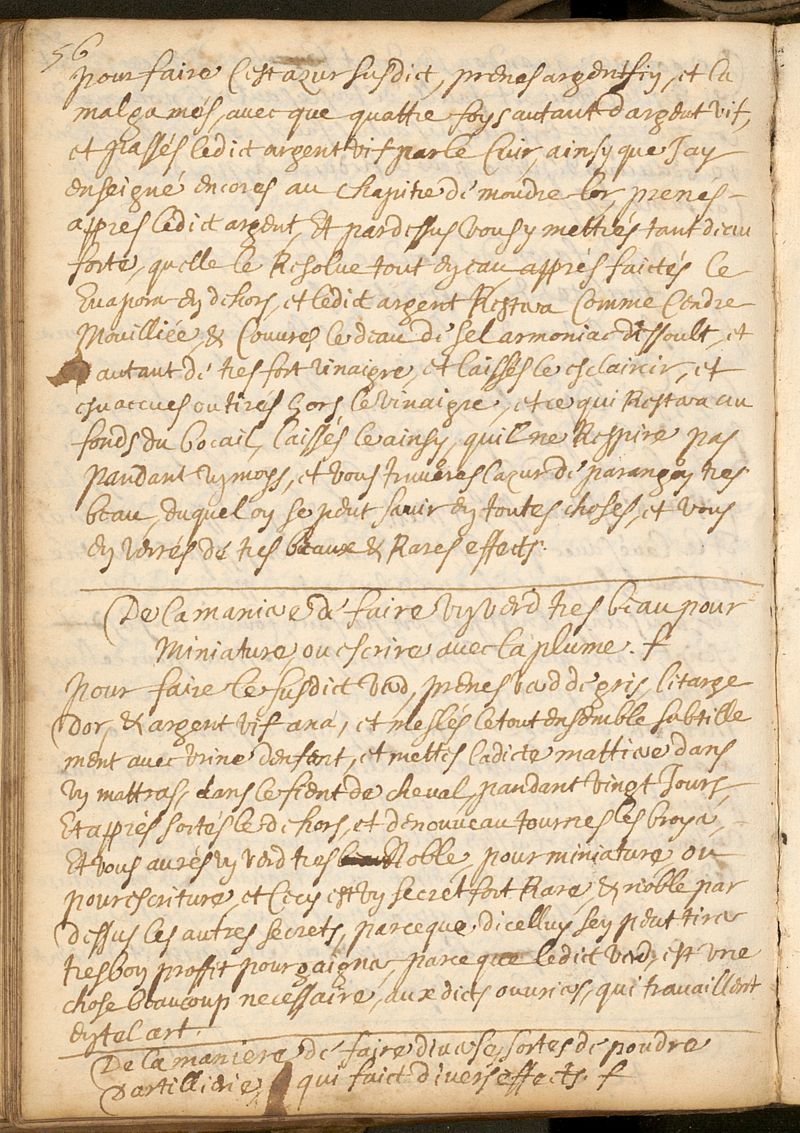 56
pour faire Cest azur susdict, prenes argent fin, et la
malgamés, avec que quattre foys autant dargent vif,
et passés ledict argent vif par le Cuir, ainsy que Jay
enseigné encores au chapitre de moudre lor, prenes
appres ledict argent, Et par dessus vous y mettrés tant deau
forte, quelle le Resolve tout en eau, appres faictes le
Evaporer en dehors, et ledict argent Restera Comme Cendre
Mouilliée, & Couvres le deau de sel armoniac dissoult, et
autant de tres fort vinaigre, et laisses le esclaircir, et
esvacues ou tirés hors le vinaigre, et ce qui Restera au
fonds du bocail, laissés le ainsy, quil ne Respire pas
pandant un moys, et vous truveres lazur de parangon tres
beau, duquel on se peut servir en toutes choses, et vous
en verrés de tres beaux & Rares effects.
De la maniere de faire un verd tres beau pour
Miniature, ou escrire avec la plume. f
pour faire le susdict verd, prenes verd de gris, litarge
dor, & argent vif ana, et meslés le tout ensemble subtille
ment avec urine denfent, et mettes ladicte mattiere dans
un mattras, dans le fient de cheval, pandant vingt Jours,
Et appres sortés le dehors, et denouveau tournes les broyer,
Et vous aurés un verd tres Noble, pour miniature ou
pour escriture, et Cecy est un secret fort Rare, & noble par
dessus les autres secrets, parceque dicelluy sen peut tirer
tres bon proffit pour gaigner, parce que ledict verd, est une
chose beaucoup necessaire, aux dicts ouvriers, qui travaillent
en tel art.
De la maniere de faire diverses sortes de poudre
Dartillerie, qui faict divers effects. f